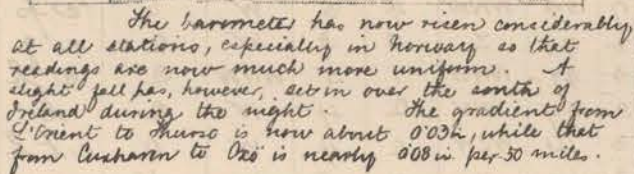 The barometer has now risen considerably
at all stations, especially in Norway so that
readings are now much more uniform. A
slight fall has, however, set in over the south of
Ireland during the night. The gradient from
L'Orient to Thurso is now about 0.03in, while that
from Cuxhaven to Oxö is nearly 0.08in per 50 miles.